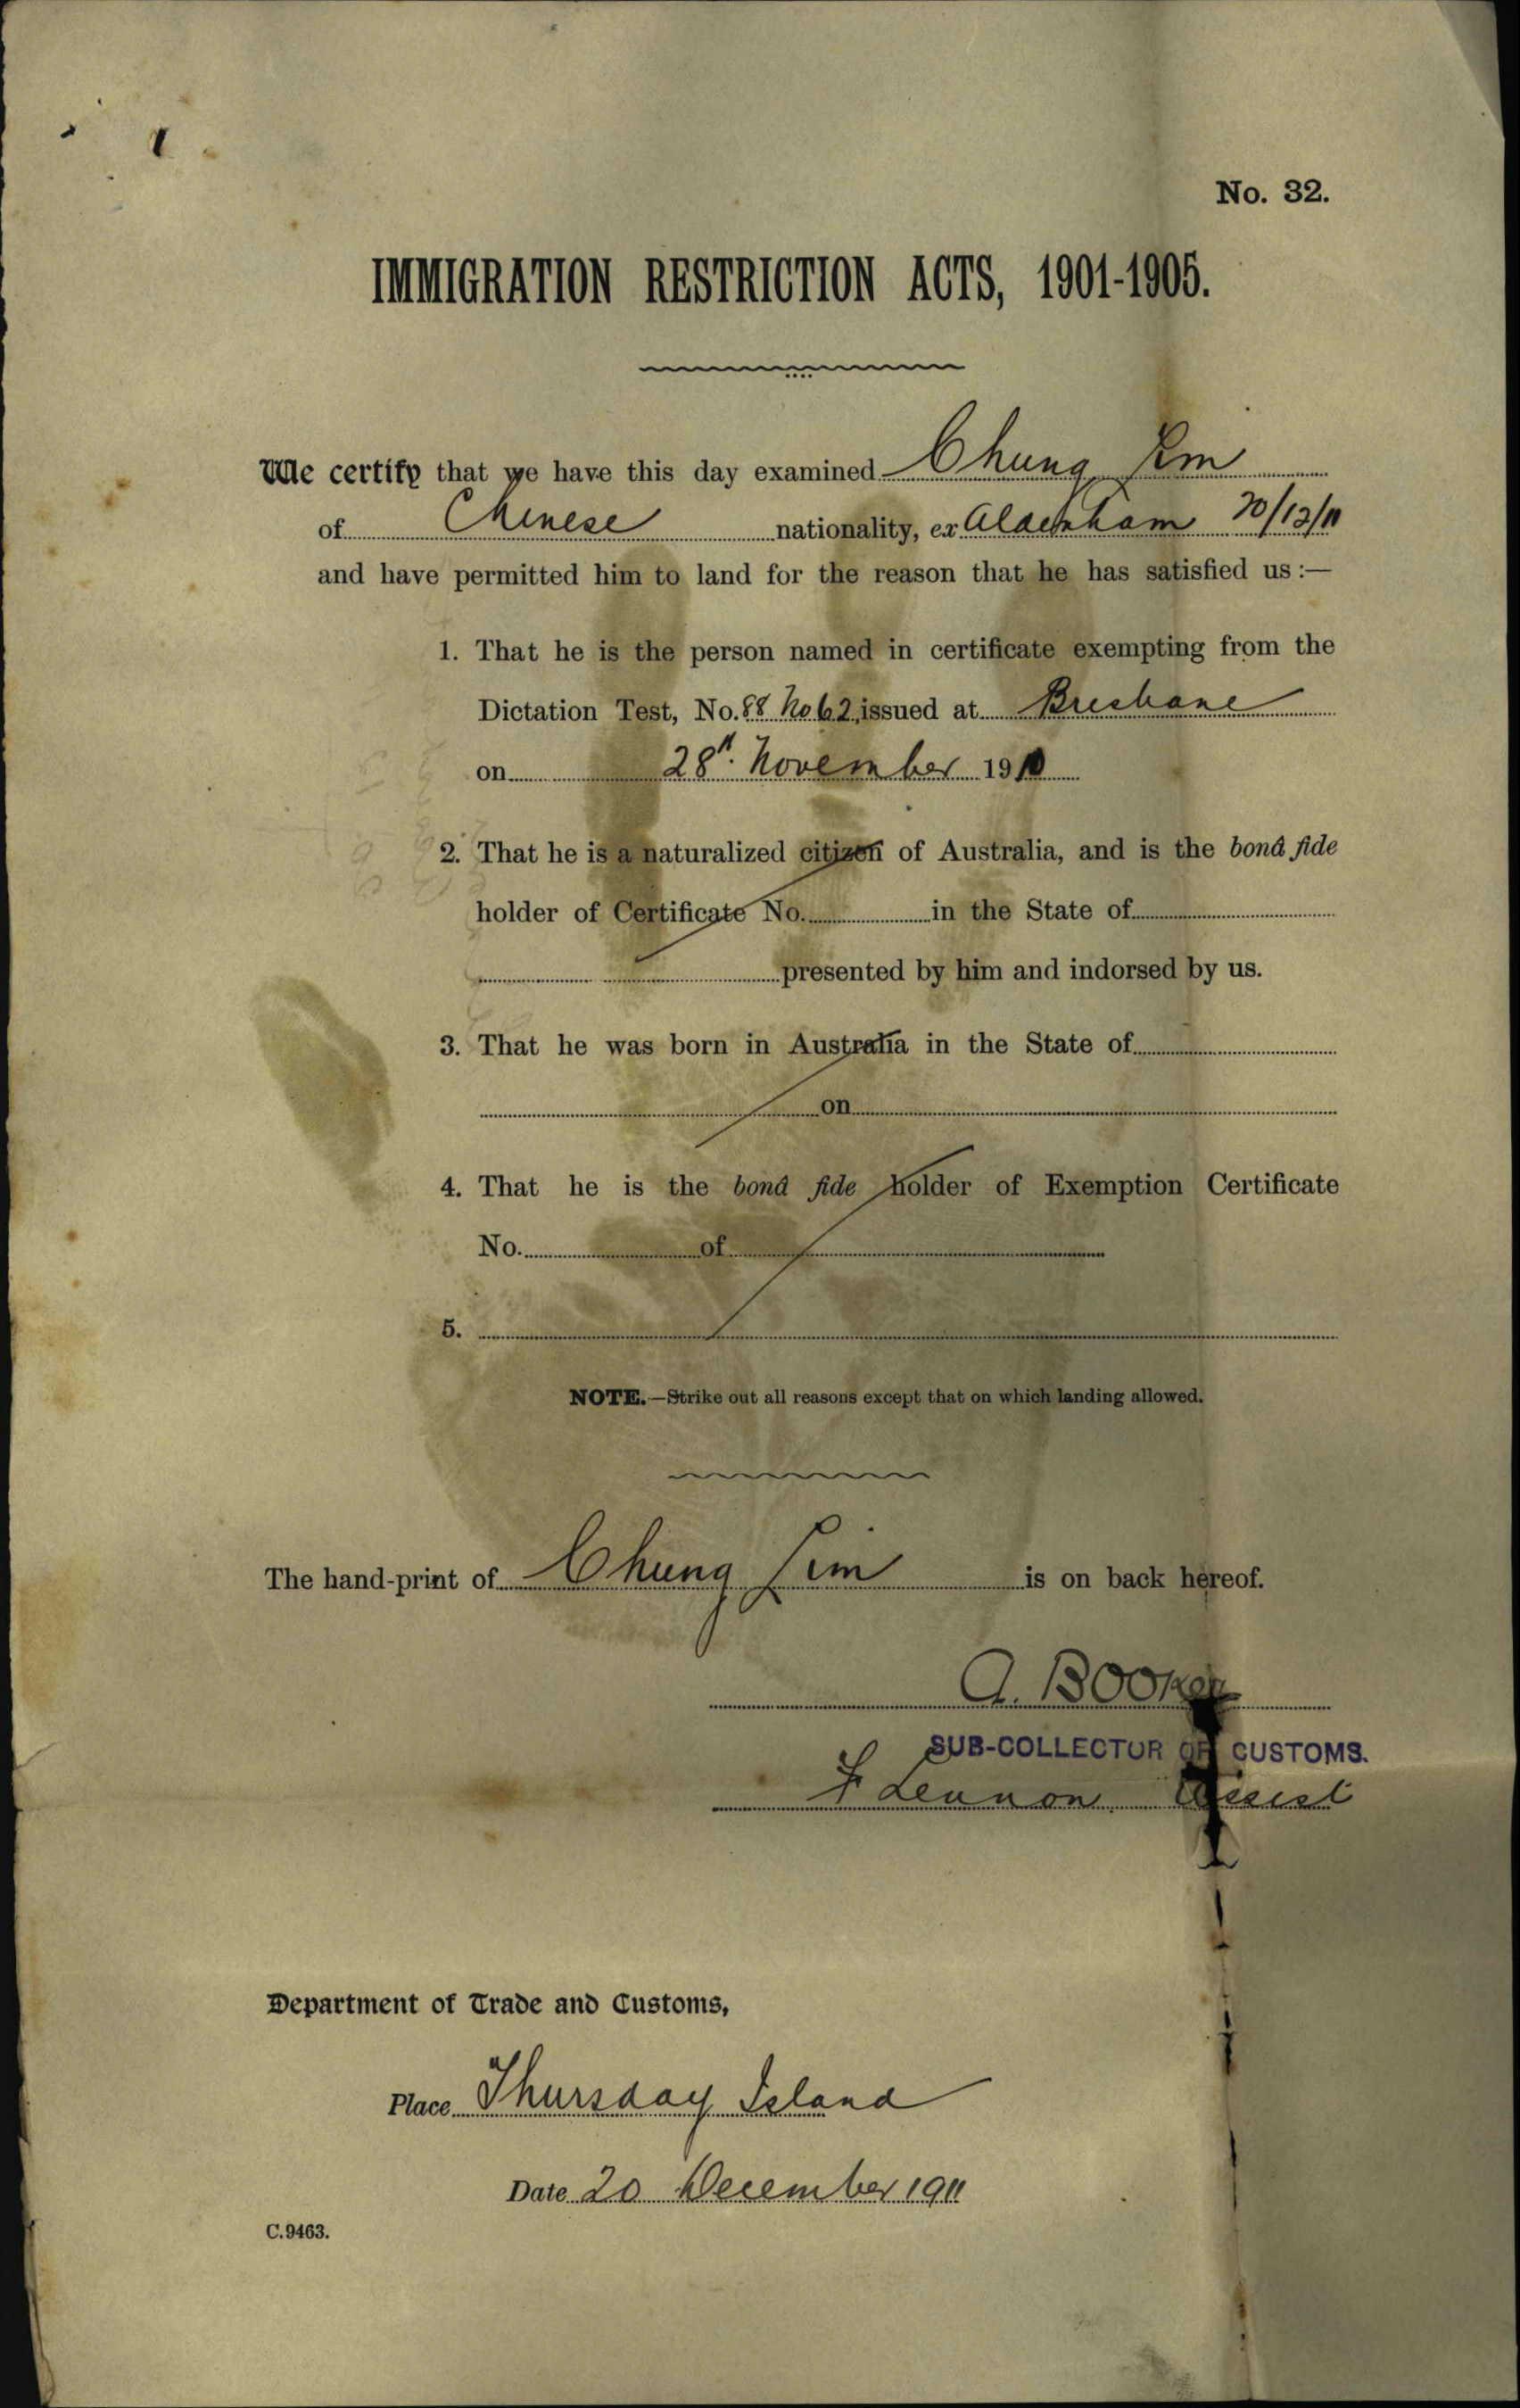 No. 32.
IMMIGRATION RESTRICTION ACTS, 1901-1905.
We certify that we have this day examined Chung Lim
of Chinese nationality, ex Aldenham 20/12/11
and have permitted him to land for the reason that he has satisfied us :—
1. That he is the person named in certificate exempting from the
Dictation Test, No. 88 No 62, issued at Brisbane
on 28th. November 1910
2. That he is a naturalized citizen of Australia, and is the bonâ fide
holder of Certificate No. in the State of
presented by him and indorsed by us.
3. That he was born in Australia in the State of
on
4. That he is the bonâ fide holder of Exemption Certificate
No. of
5.
NOTE.—Strike out all reasons except that on which landing allowed.
The hand-print of Chung Lim is on back hereof.
A. Booker
SUB-COLLECTOR OF CUSTOMS.
F Lennon Assist
Department of Trade and Customs,
Place Thursday Island
Date 20 December 1911
C.9463.